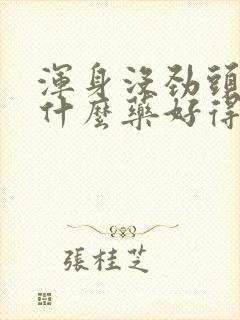 渾身沒勁頭
什麼藥好得
張桂芝